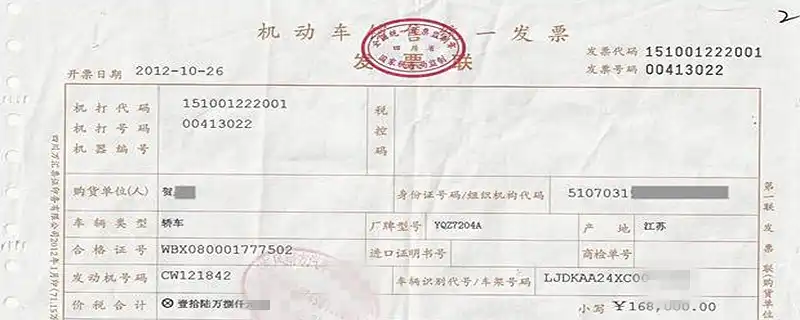 2
机动车销售统一发票
发票联
全国统一发票监制章
四川省
国家税务局监制
发票代码 151001222001
发票号码 00413022
开票日期 2012-10-26
机打代码 151001222001
机打号码 00413022
机器编号
税控码
购货单位(人) 贺
身份证号码/组织机构代码 5107031
车辆类型 轿车 厂牌型号 YQZ7204A 产地 江苏
合格证号 WBX080001777502 进口证明书号 商检单号
发动机号码 CW121842 车辆识别代号/车架号码 LJDKAA24XC00
价税合计 ⊗壹拾陆万捌仟 小写 ￥168,000.00
第一联 发票联(购货单位